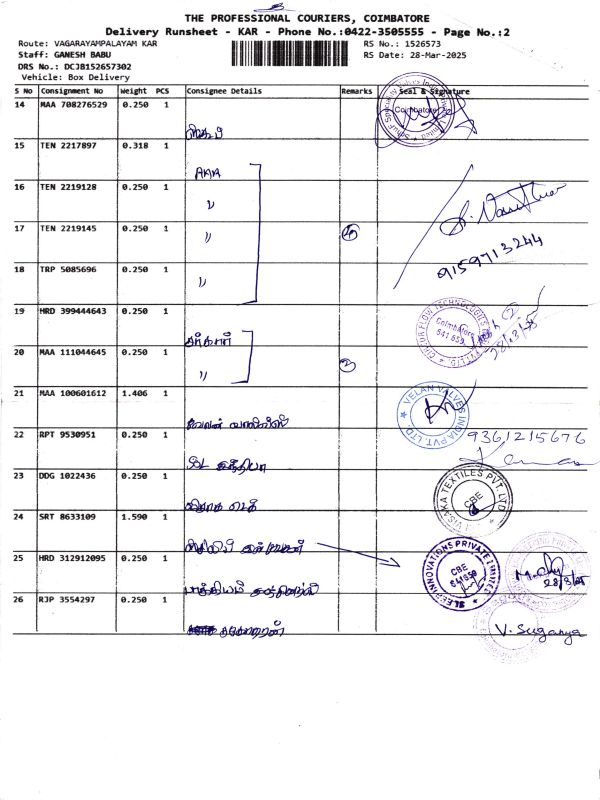 THE PROFESSIONAL COURIERS, COIMBATORE
Delivery Runsheet - KAR - Phone No.:0422-3505555 - Page No.:2
Route: VAGARAYAMPALAYAM KAR
RS No.: 1526573
Staff: GANESH BABU
RS Date: 28-Mar-2025
DRS No.: DCJB152657302
Vehicle: Box Delivery
S No Consignment No Weight PCS Consignee Details Remarks Seal & Signature
14 MAA 708276529 0.250 1
Coimbatore
15 TEN 2217897 0.318 1
16 TEN 2219128 0.250 1
〃
17 TEN 2219145 0.250 1
〃
9159713244
18 TRP 5085696 0.250 1
〃
19 HRD 399444643 0.250 1
Coimbatore
641 659
20 MAA 111044645 0.250 1
〃
2
21 MAA 100601612 1.406 1
VELAN VALVES INDIA PVT. LTD.
22 RPT 9530951 0.250 1
9361215676
இந்தியா
23 DDG 1022436 0.250 1
VISAKA TEXTILES PVT. LTD.
CBE
24 SRT 8633109 1.590 1
25 HRD 312912095 0.250 1
INNOVATIONS PRIVATE LIMITED
CBE
641659
28/3/25
26 RJP 3554297 0.250 1
V. Suganya